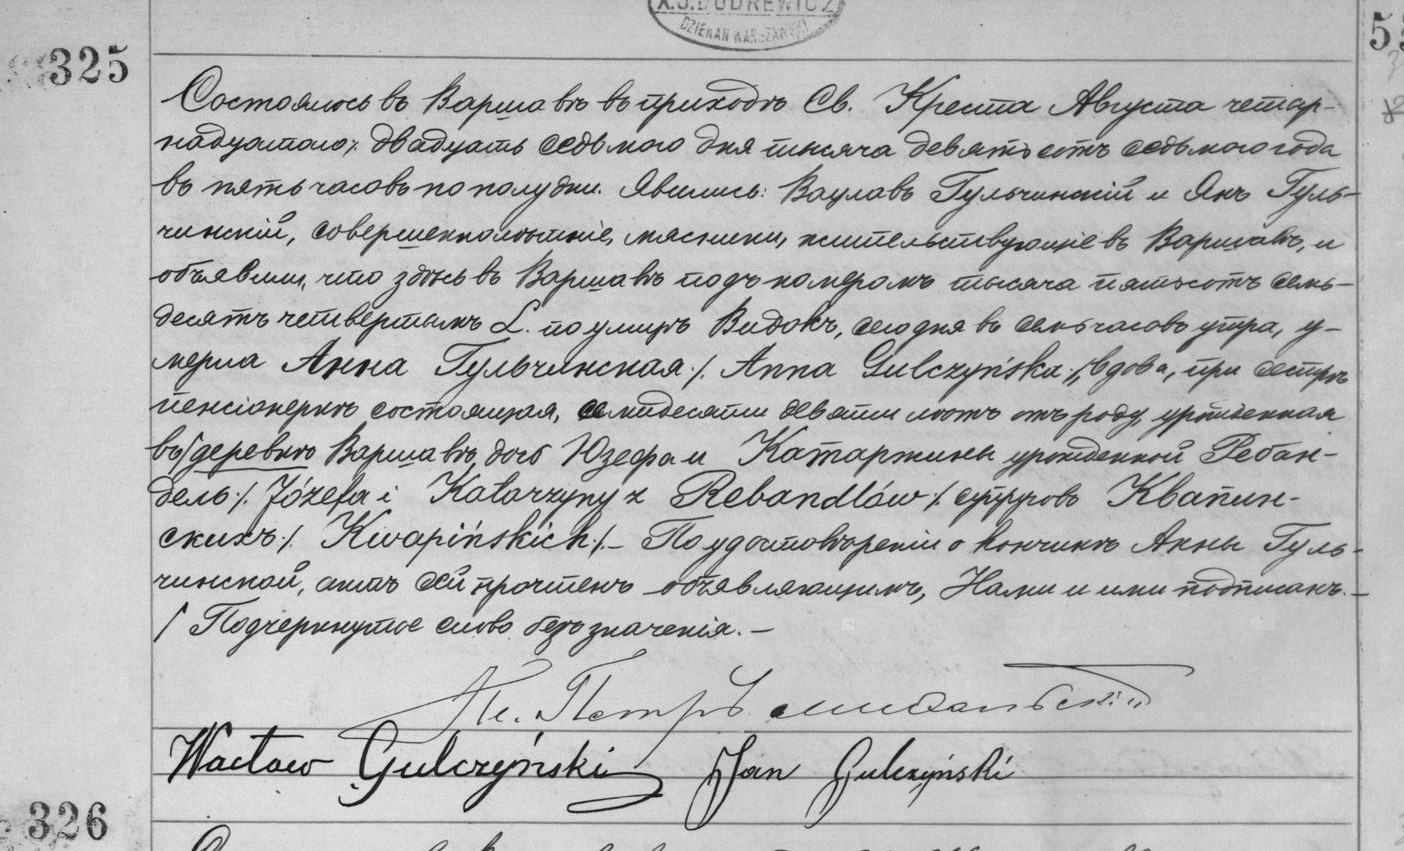 X.J.DUDREWICZ
DZIEKAN WARSZAWSKI
325
Состоялось въ Варшавѣ въ приходѣ Св. Креста Августа четыр-
надцатого /. двадцать седьмого дня тысяча девятьсотъ седьмого года
въ пять часовъ по полудни. Явились: Вацлавъ Гульчинскій и Янъ Гуль-
чинскій, совершеннолѣтніе, мясники, жительствующіе въ Варшавѣ, и
объявили, что здѣсь въ Варшавѣ подъ номеромъ тысяча пятьсотъ семь-
десятъ четвертымъ L. по улицѣ Видокъ, сегодня въ семь часовъ утра, у-
мерла Анна Гульчинская /. Anna Gulczyńska /., вдова, при сестрѣ
пенсіонеркѣ состоящая, семидесяти девяти лѣтъ отъ роду, урожденная
въ / деревнѣ Варшавѣ, дочь Юзефа и Катаржины урожденной Ребан-
дель /. Józefa i Katarzyny z Rebandlów /. супруговъ Квапин-
скихъ /. Kwapińskich /. — По удостовѣреніи о кончинѣ Анны Гуль-
чинской, актъ сей прочтенъ объявляющимъ, Нами и ими подписанъ. —
/ Подчеркнутое слово безъ значенія. —
Кс. Петръ
Wacław Gulczyński Jan Gulczyński
326